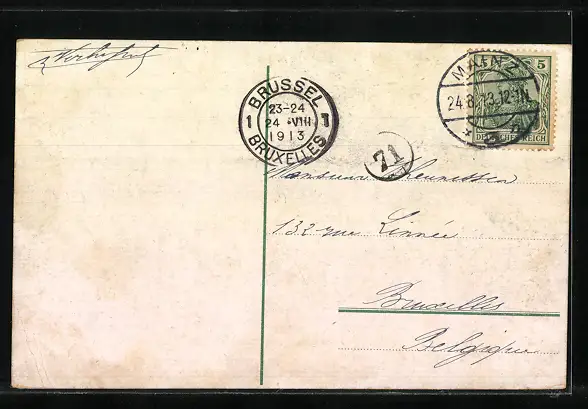 BRUSSEL
1 23-24 1
24 VIII
1913
BRUXELLES
MAINZ
24.8.13.12-1N.
5
DEUTSCHES REICH
71
Monsieur
132 rue Linnée
Bruxelles
Belgique